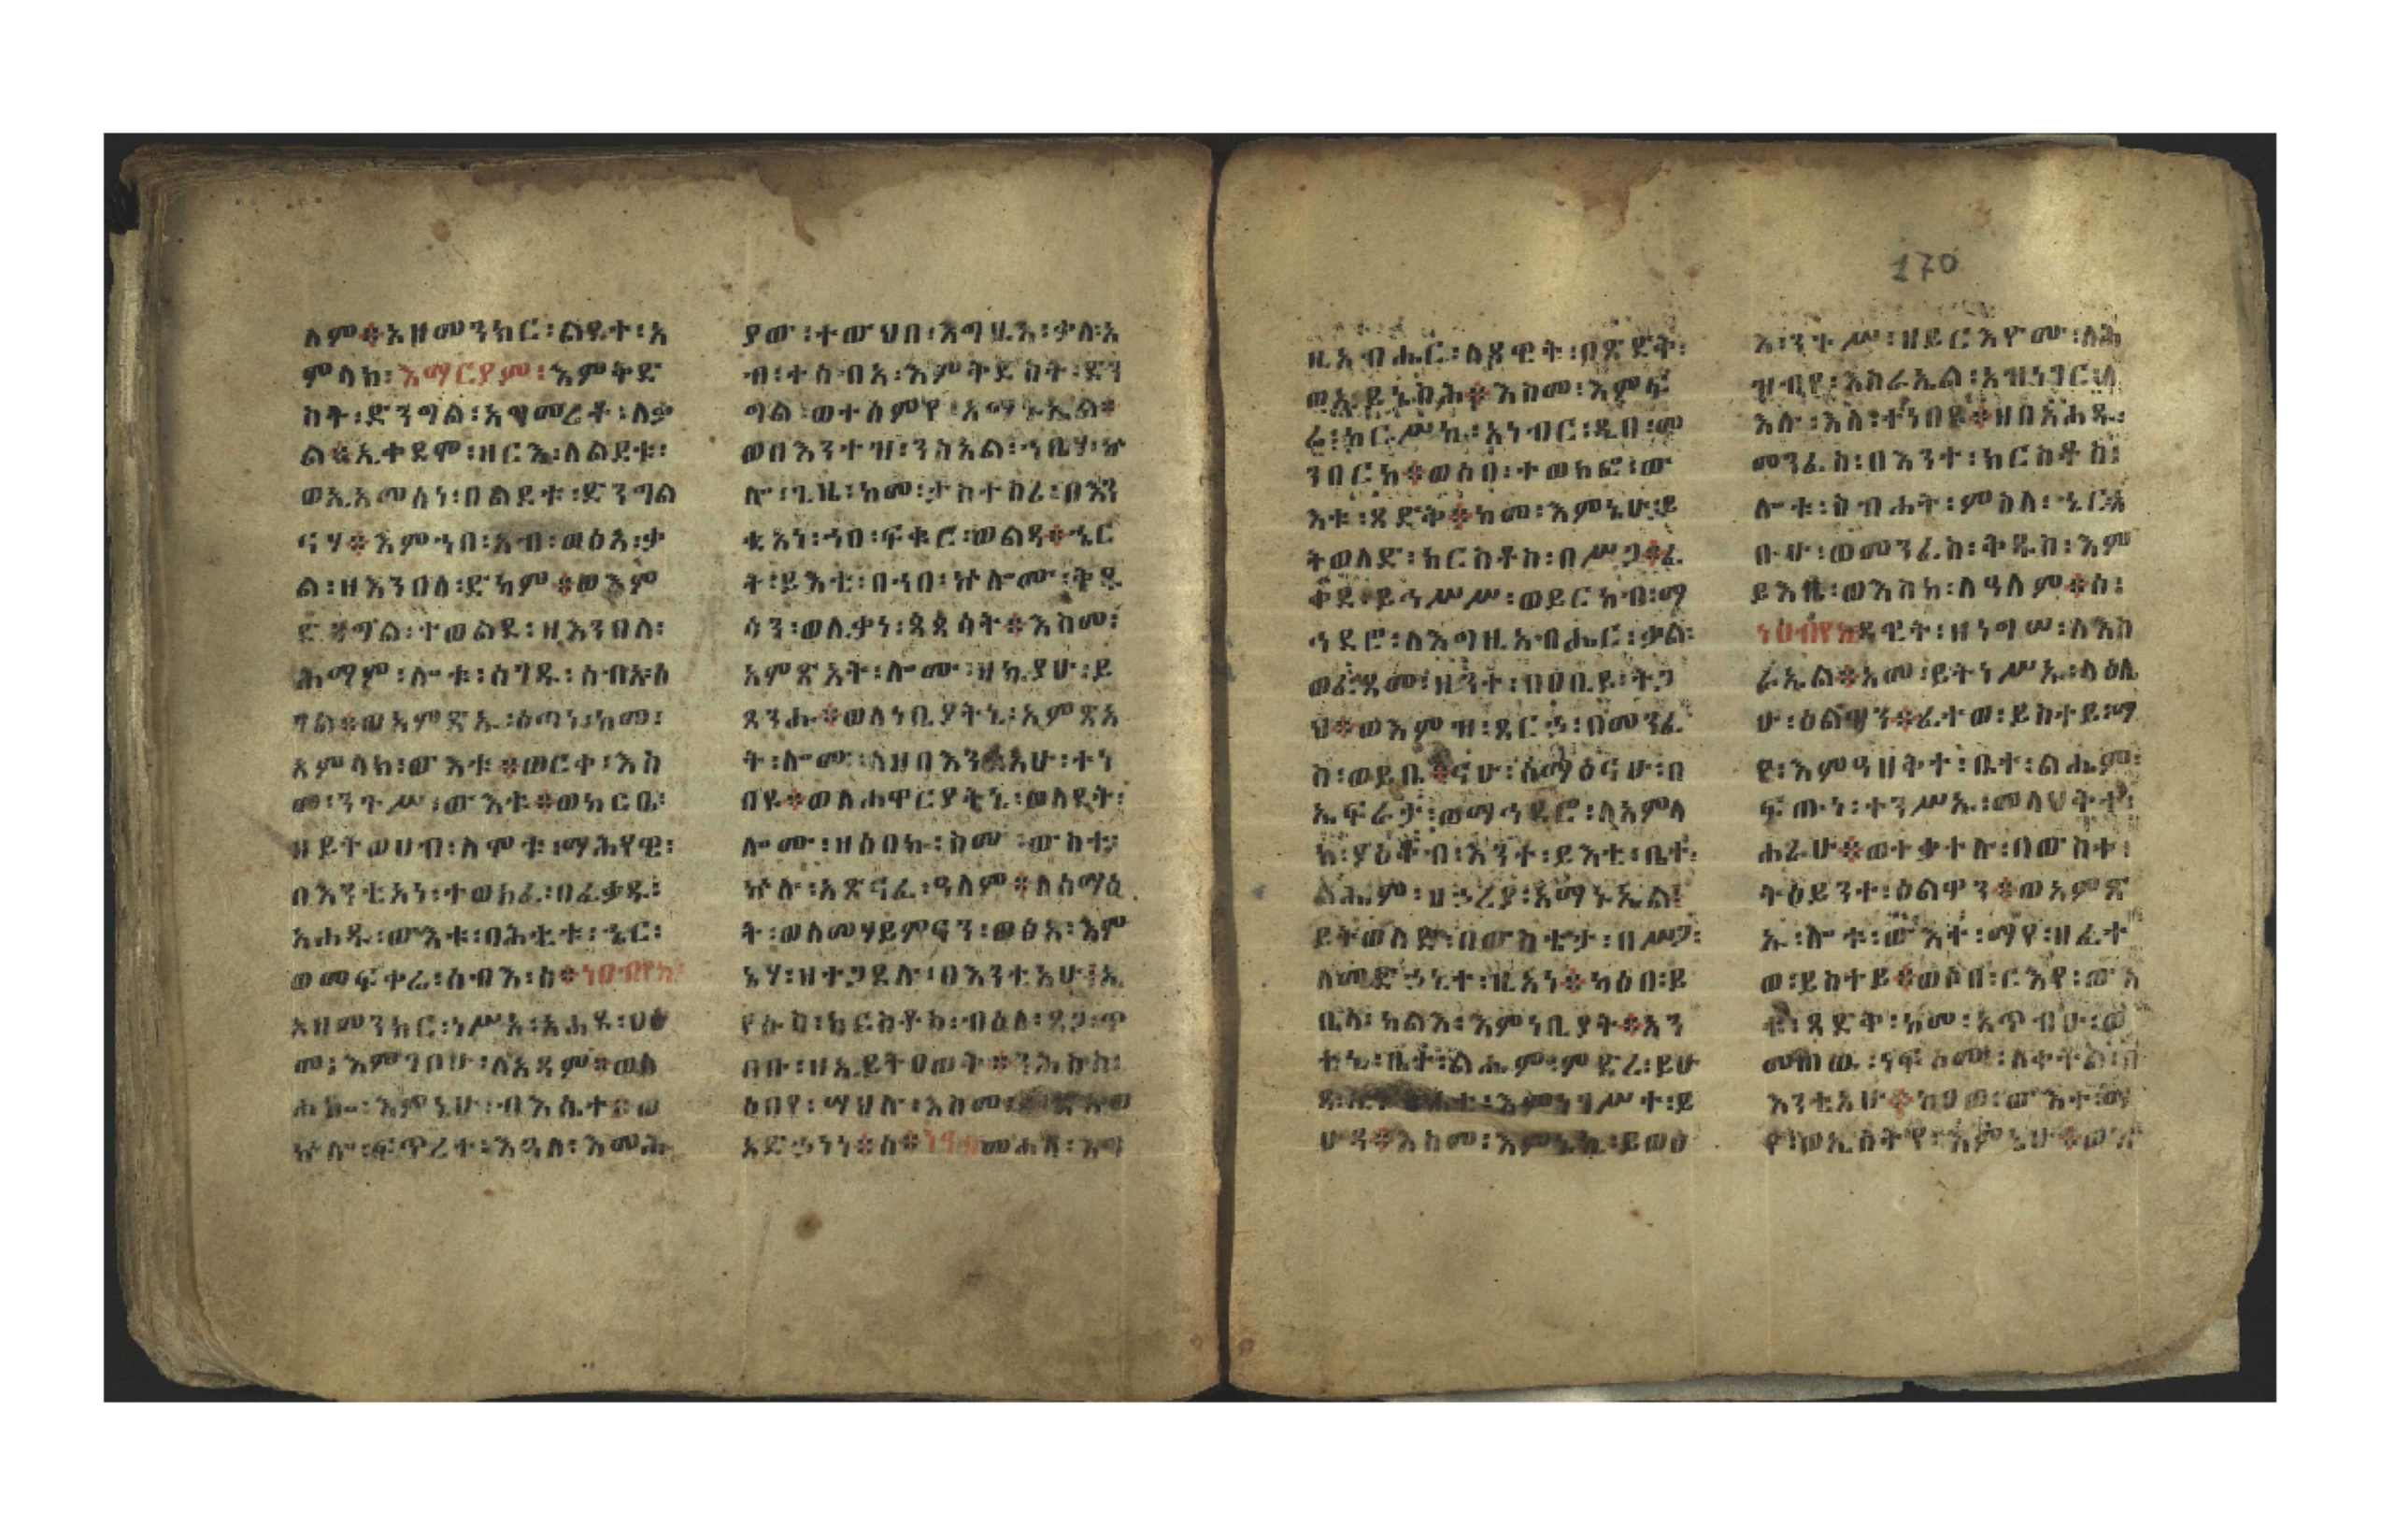 ለም፨አዘመንክር፡ልደተ፡አ
ምላክ፡እማርያም፡እምቅድ
ስት፡ድንግል፡አግመረቶ፡ለቃ
ል፨ኢቀደሞ፡ዘርእ፡ለልደቱ፡
ወኢአመሰነ፡በልደቱ፡ድንግል
ናሃ፨እምኀበ፡አብ፡ወፅአ፡ቃ
ል፡ዘእንበለ፡ድካም፨ወእም
ድንግል፡ተወልደ፡ዘእንበለ፡
ሕማም፡ሎቱ፡ሰገዱ፡ሰብአ፡ሰ
ገል፨ወአምጽኡ፡ዕጣነ፡ከመ፡
አምላክ፡ውእቱ፨ወርቀ፡እስ
መ፡ንጉሥ፡ውእቱ፨ወከርቤ፡
ዘይተወሀብ፡ለሞቱ፡ማሕየዊ፡
በእንቲአነ፡ተወክፈ፡በፈቃዱ፡
አሐዱ፡ውእቱ፡በሕቲቱ፡ኄር፡
ወመፍቀሬ፡ሰብእ፡ሰ፨ነዐብየኪ፡
አዘመንክር፡ነሥአ፡አሐደ፡ዐፅ
መ፡እምገቦሁ፡ለአዳም፨ወለ
ሐኰ፡እምኔሁ፡ብእሲተ፡ወ
ኵሎ፡ፍጥረተ፡እጓለ፡እመሕ
ያው፡ተውህበ፡እግዚእ፡ቃለ፡አ
ብ፡ተሰብአ፡እምቅድስት፡ድን
ግል፡ወተሰምየ፡አማኑኤል፨
ወበእንተዝ፡ንስአል፡ኀቤሃ፡ኵ
ሎ፡ጊዜ፡ከመ፡ታስተስሪ፡በእን
ቲአነ፡ኀበ፡ፍቁር፡ወልዳ፨ኄር
ት፡ይእቲ፡በኀበ፡ኵሎሙ፡ቅዱ
ሳን፡ወሊቃነ፡ጳጳሳት፨እስመ፡
አምጽአት፡ሎሙ፡ዘኪያሁ፡ይ
ጸንሑ፨ወለነቢያትኒ፡አምጽአ
ት፡ሎሙ፡ለዘበእንቲአሁ፡ተነ
በዩ፨ወለሐዋርያቲኒ፡ወለደት፡
ሎሙ፡ዘሰበኩ፡ስመ፡ውስተ፡
ኵሉ፡አጽናፈ፡ዓለም፨ለሰማዕ
ት፡ወለመሃይምናን፡ወፅአ፡እም
ኔሃ፡ዘተጋደሉ፡በእንቲአሁ፡ኢ
የሱስ፡ክርስቶስ፡ብዕለ፡ጸጋ፡ጥ
በቡ፡ዘኢይትዐወቅ፨ንሕስስ፡
ዕበየ፡ማህሉ፡እስመ፡
አድኃነነ፨ሰ፨መሐለ፡እግ
ዚአብሔር፡ለዳዊት፡በጽድቅ፡
ወኢይኔስሕ፨እስመ፡እምፍ
ሬ፡ከርሥከ፡አነብር፡ዲበ፡መ
ንበርከ፨ወሰበ፡ተወክፎ፡ው
እቱ፡ጻድቅ፨ከመ፡እምኔሁ፡ይ
ትወለድ፡ክርስቶስ፡በሥጋ፨ፈ
ቀደ፡ይኅሥሥ፡ወይርከብ፡ማ
ኅደሮ፡ለእግዚአብሔር፡ቃል፡
ወፈጸመ፡ዘንተ፡በዐቢይ፡ትጋ
ህ፨ወእምዝ፡ጸርኃ፡በመንፈ
ስ፡ወይቤ፨ናሁ፡ሰማዕናሁ፡በ
ኤፍራታ፡ወማኅደሮ፡ለአምላ
ከ፡ያዕቆብ፡እንተ፡ይእቲ፡ቤተ፡
ልሔም፡ዘኃረያ፡አማኑኤል፡
ይትወለድ፡በውስቴታ፡በሥጋ፡
ለመድኃኒተ፡ዚአነ፨ካዕበ፡ይ
ቤላ፡ካልእ፡እምነቢያት፨አን
ቲኒ፡ቤተ፡ልሔም፡ምድረ፡ይሁ
ዳ፡እምነገሥተ፡ይ
ሁዳ፨እስመ፡እምኔኪ፡ይወፅ
170
እ፡ንጉሥ፡ዘይርእዮሙ፡ለሕ
ዝብየ፡እስራኤል፡አዝነገር፡ለ
እሉ፡እለ፡ተነበዩ፨ዘበአሐዱ፡
መንፈስ፡በእንተ፡ክርስቶስ፡
ሎቱ፡ስብሐት፡ምስለ፡ኄር፡አ
ቡሁ፡ወመንፈስ፡ቅዱስ፡እም
ይእዜ፡ወእስከ፡ለዓለም፨ሰ፡
ነዐብየኪ፡ዳዊት፡ዘነግሠ፡ለእስ
ራኤል፨አመ፡ይትነሥኡ፡ላዕሌ
ሁ፡ዕልዋን፨ፈተወ፡ይስተይ፡ማ
የ፡እምዓዘቅተ፡ቤተ፡ልሔም፡
ፍጡነ፡ተንሥኡ፡መላህቅተ፡
ሐራሁ፨ወተቃተሉ፡በውስተ፡
ትዕይንተ፡ዕልዋን፨ወአምጽ
ኡ፡ሎቱ፡ውእተ፡ማየ፡ዘፈተ
ወ፡ይስተይ፨ወሶበ፡ርእየ፡ውእ
ቱ፡ጻድቅ፡ከመ፡አጥብዑ፡ወ
መጠዉ፡ነፍሶሙ፡ለቀትል፡በ
እንቲአሁ፨ከዐወ፡ውእተ፡ማ
የ፡ወኢሰትየ፡እምኔሁ፨